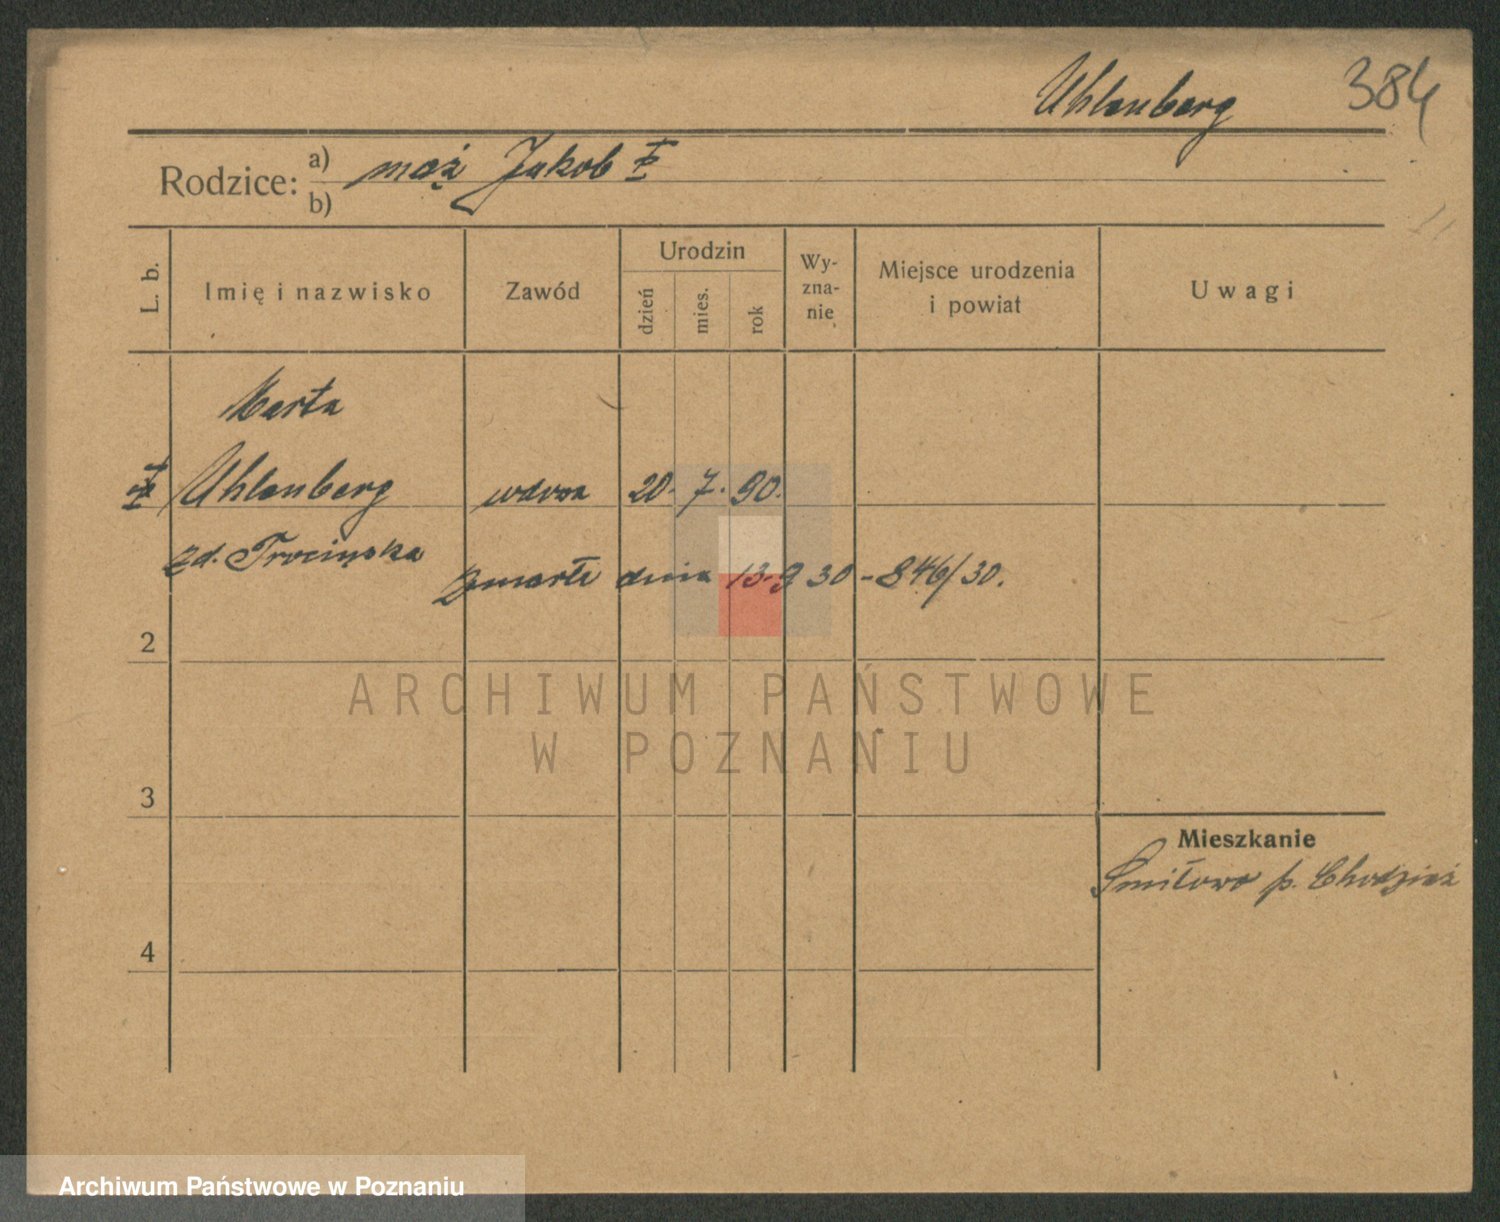 Uhlenberg 384
Rodzice: a) mąż Jakob
b)
L. b. Imię i nazwisko Zawód Urodzin dzień mies. rok Wy-zna-nie Miejsce urodzenia i powiat Uwagi
Marta
Uhlenberg wdowa 20. 7. 90.
zd. Trocińska
Zmarła dnia 13.9 30 - 846/30.
2
ARCHIWUM PAŃSTWOWE
W POZNANIU
3
Mieszkanie
Śmiłowo p. Chodzież
4
Archiwum Państwowe w Poznaniu